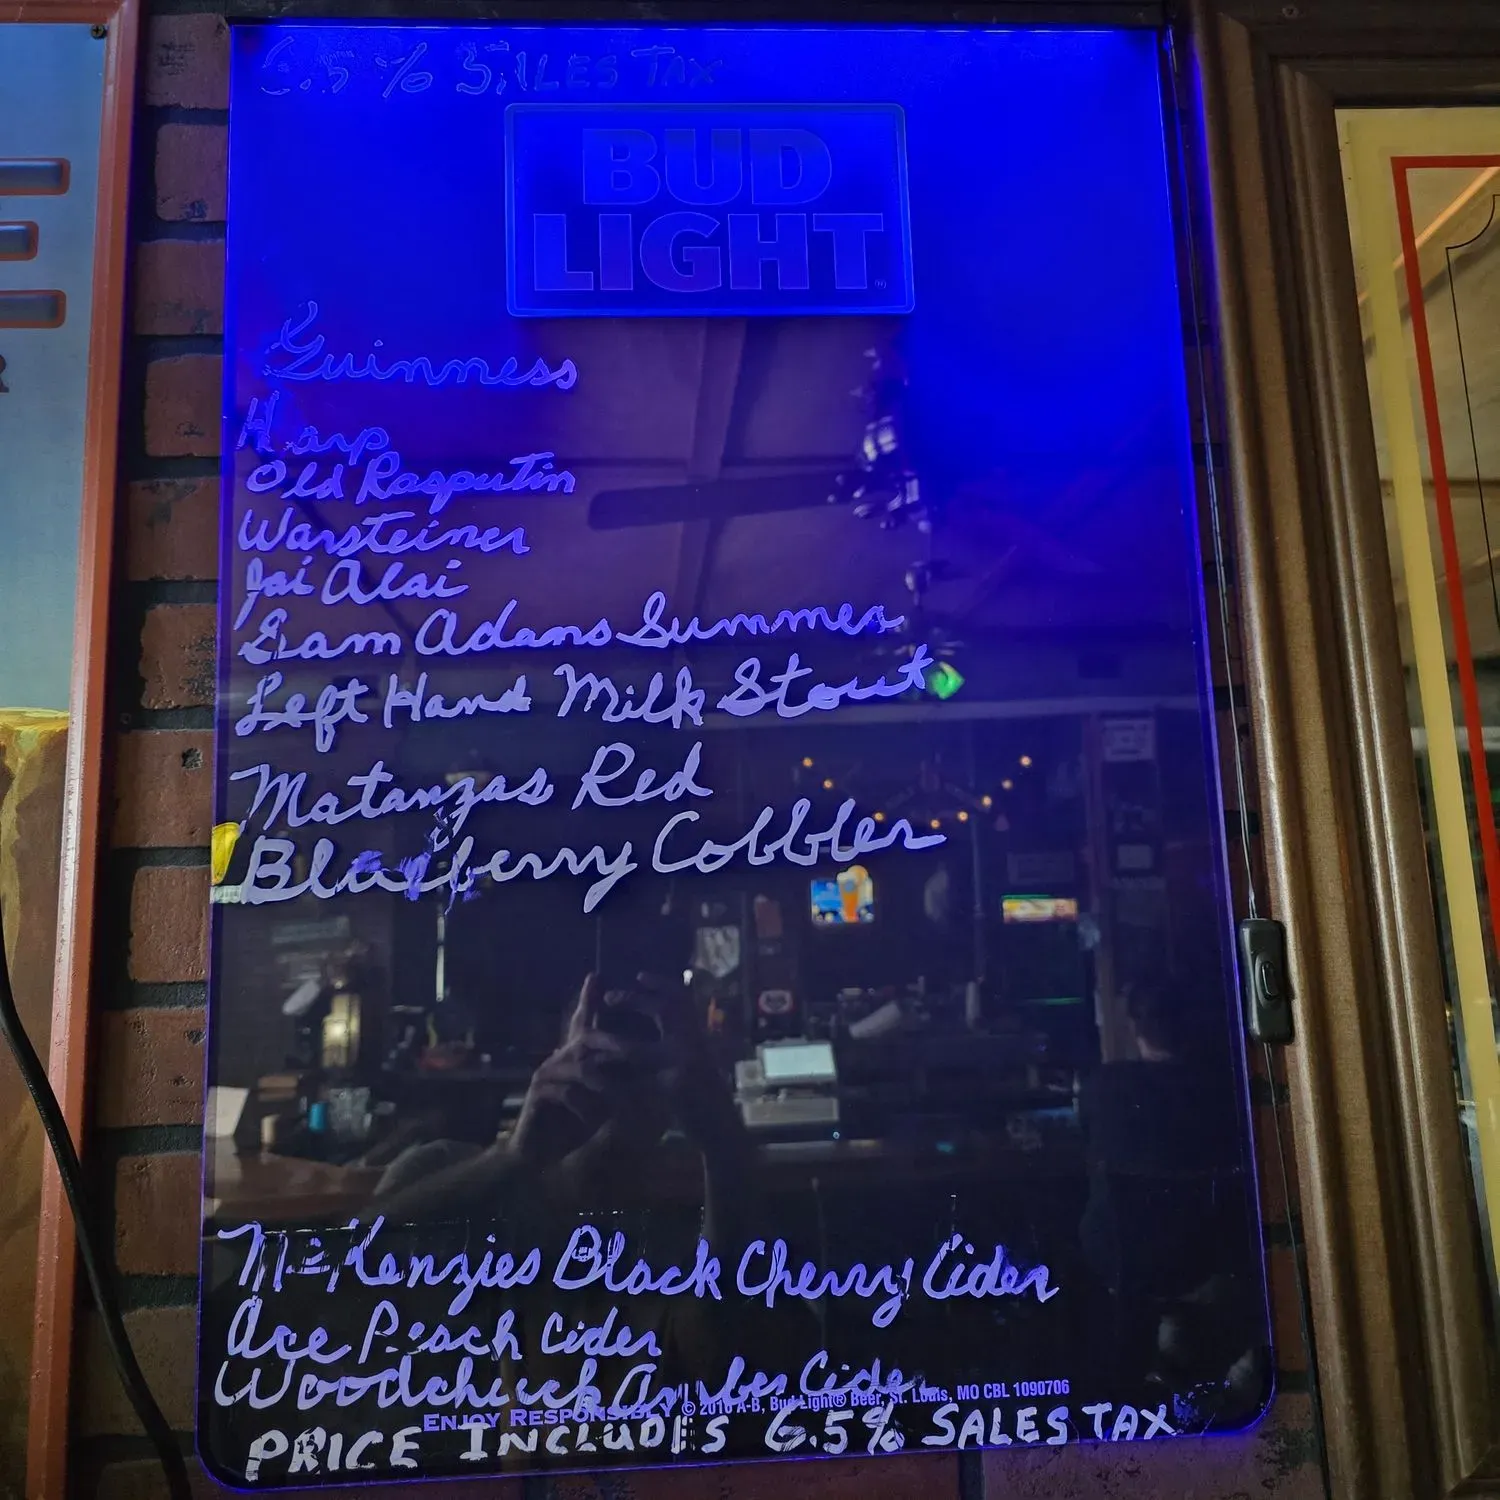 6.5% SALES TAX
BUD
LIGHT
Guinness
Harp
Old Rasputin
Warsteiner
Jai Alai
Sam Adams Summer
Left Hand Milk Stout
Matanzas Red
Blueberry Cobbler
McKenzies Black Cherry Cider
Ace Peach Cider
Woodchuck Amber Cider
ENJOY RESPONSIBLY © 2016 A-B, Bud Light® Beer, St. Louis, MO CBL 1090706
PRICE INCLUDES 6.5% SALES TAX